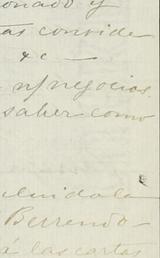 onado y
tas convide
&c —
negocios
saber como
cuidala
Berrendo
á las cartas